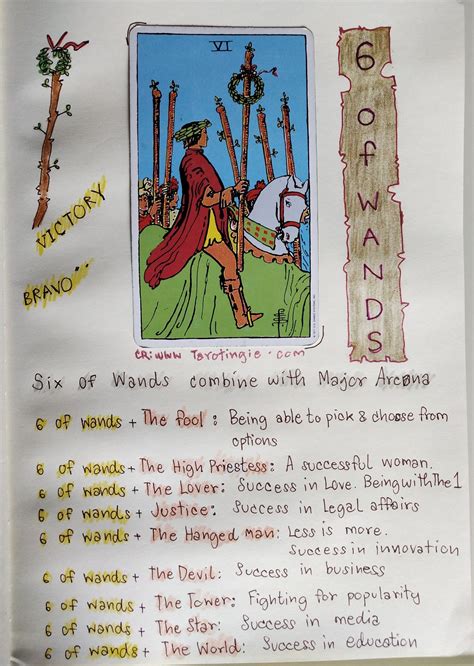 VI
6 of WANDS
VICTORY
BRAVO
CR: www Tarotingie.com
Six of Wands combine with Major Arcana
6 of wands + The fool : Being able to pick & choose from
options
6 of wands + The High Priestess: A successful woman.
6 of wands + The Lover: Success in Love. Being with The 1
6 of wands + Justice: Success in Legal affairs
6 of wands + The Hanged man: Less is more.
Success in innovation
6 of wands + The Devil: Success in business
6 of wands + The Tower: Fighting for popularity
6 of wands + The Star: Success in media
6 of wands + The World: Success in education